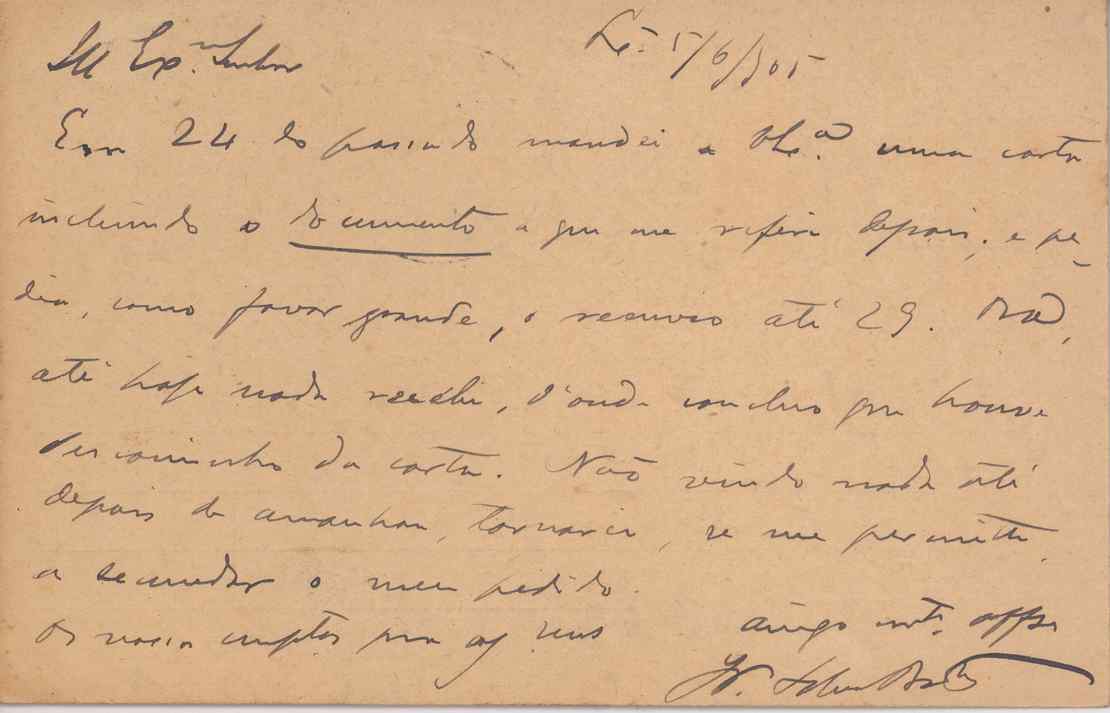 Ill Ex.mo Senhor
5/6/905
Em 24 do passado mandei a V.Ex.ª uma carta
incluindo o documento a que me referi depois, e pe-
dia, como favor grande, o recurso até 29. Ora,
até hoje nada recebi, d'onde concluo que houve
descaminho da carta. Não vindo nada até
depois de amanhan, tornarei, se me permitte,
a secundar o meu pedido.
Os nossos cumptos pra os seus
amigo mto